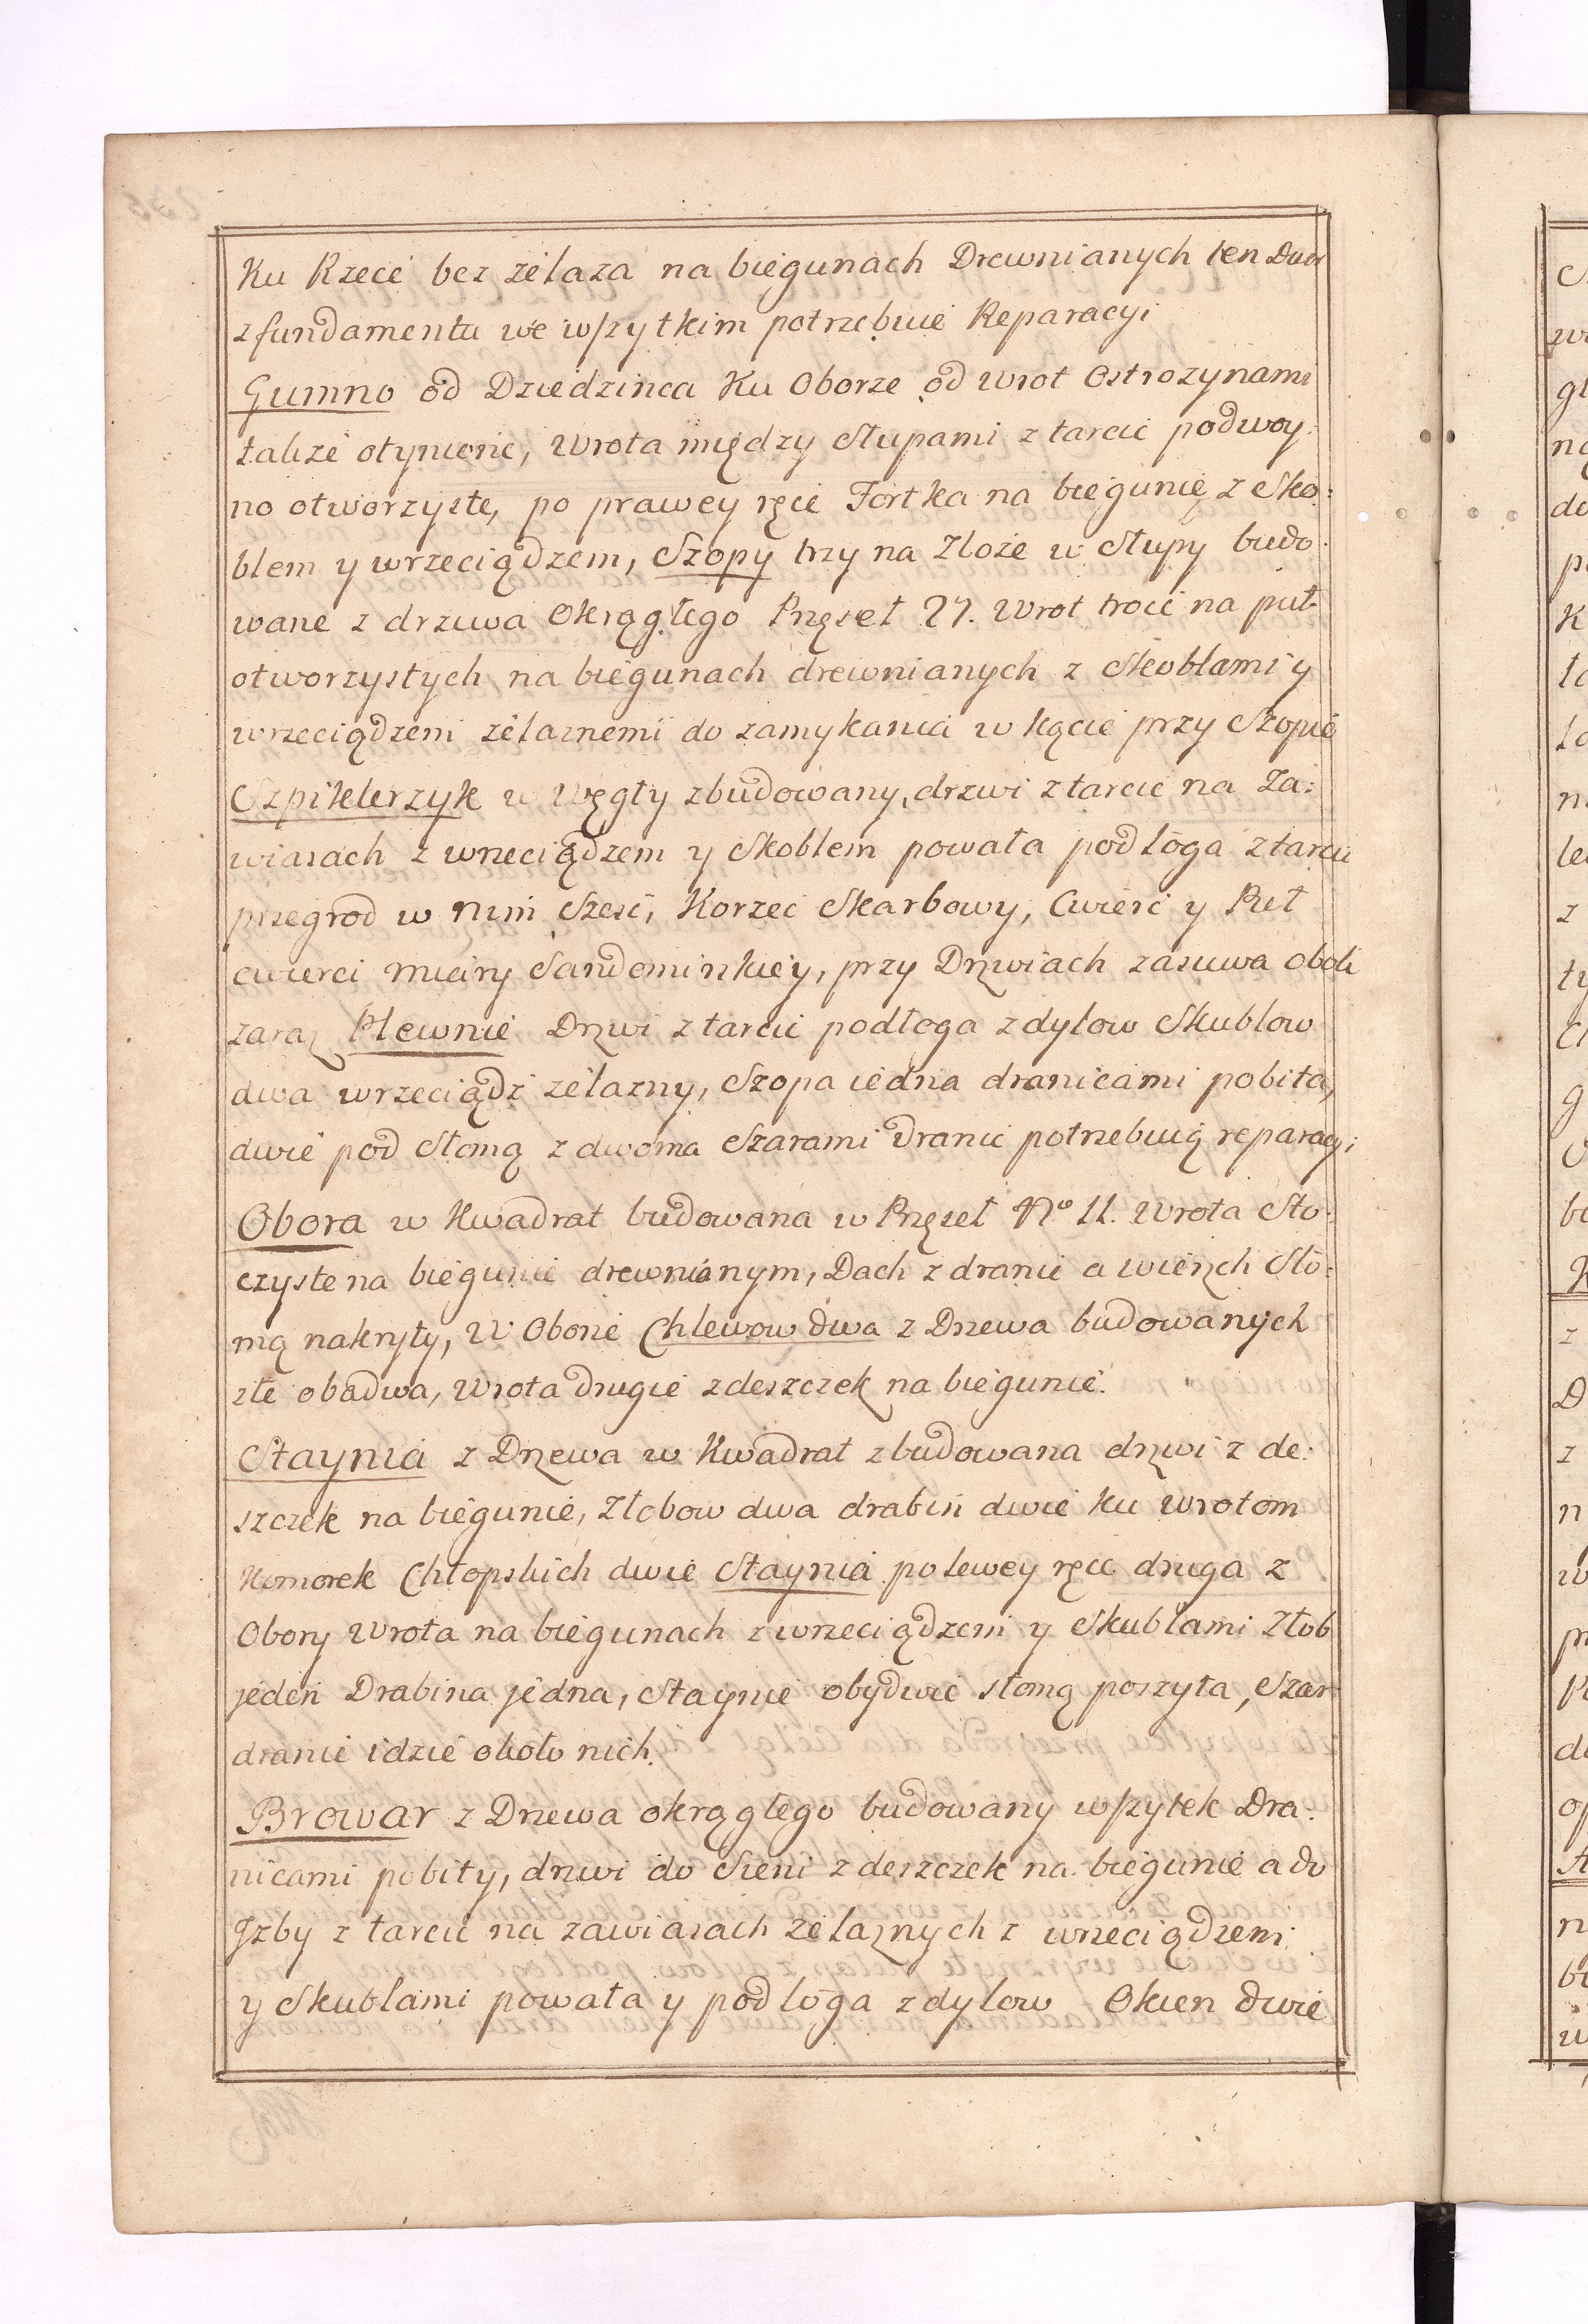 Ku Rzece bez żelaza na biegunach Drewnianych ten Dwor
z fundamentu we wszytkim potrzebuie Reparacyi
Gumno od Dziedzinca Ku Oborze od wrot Ostrozynami
takze otynione, Wrota między Słupami z tarcic podwoy:
no otworzyste, po prawey ręce Fortka na biegunie z Sko:
blem y wrzeciądzem, Szopy trzy na Zboże w Słupy budo:
wane z drzewa Okrągłego Pręseł 27. Wrot troie na puł
otworzystych na biegunach drewnianych z Skoblami y
wrzeciądzem żelaznemi do zamykania w kącie przy Szopie
Szpiklerzyk w Węgły zbudowany, drzwi z tarcic na Za:
wiasach z wrzeciądzem y Skoblem powała podłoga z tarcic
przegrod w nim Sześć, Korzec Skarbowy, Cwierć y Puł
cwierci miary Sandomirskiey, przy Drzwiach zasuwa oboli
zaraz Plewnie Drzwi z tarcic podłoga z dylow Skublow
dwa wrzeciądz żelazny, Szopa iedna dranicami pobita,
dwie pod Słomą z dwoma Szarami dranic potrzebuią reparacyi
Obora w Kwadrat budowana w Pręseł No 11. Wrota Sto:
czyste na biegunie drewnianym, Dach z dranic a wierzch Sło:
mą nakryty, W Oborze Chlewow dwa z Drzewa budowanych
złe obadwa, Wrota drugie z deszczek na biegunie.
Staynia z Drzewa w Kwadrat zbudowana drzwi z de:
szczek na biegunie, Złobow dwa drabin dwie ku wrotom
Komorek Chłopskich dwie Staynia po lewey ręce druga z
Obory Wrota na biegunach z wrzeciądzem y Skublami Złob
jeden Drabina jedna, Staynie obydwie słomą poszyta, Szar
dranic idzie około nich.
Browar z Drzewa okrągłego budowany wszytek Dra:
nicami pobity, drzwi do Sieni z deszczek na biegunie a do
Jzby z tarcic na zawiasach żelaznych z wrzeciądzem
y Skublami powała y podłoga z dylow Okien dwie